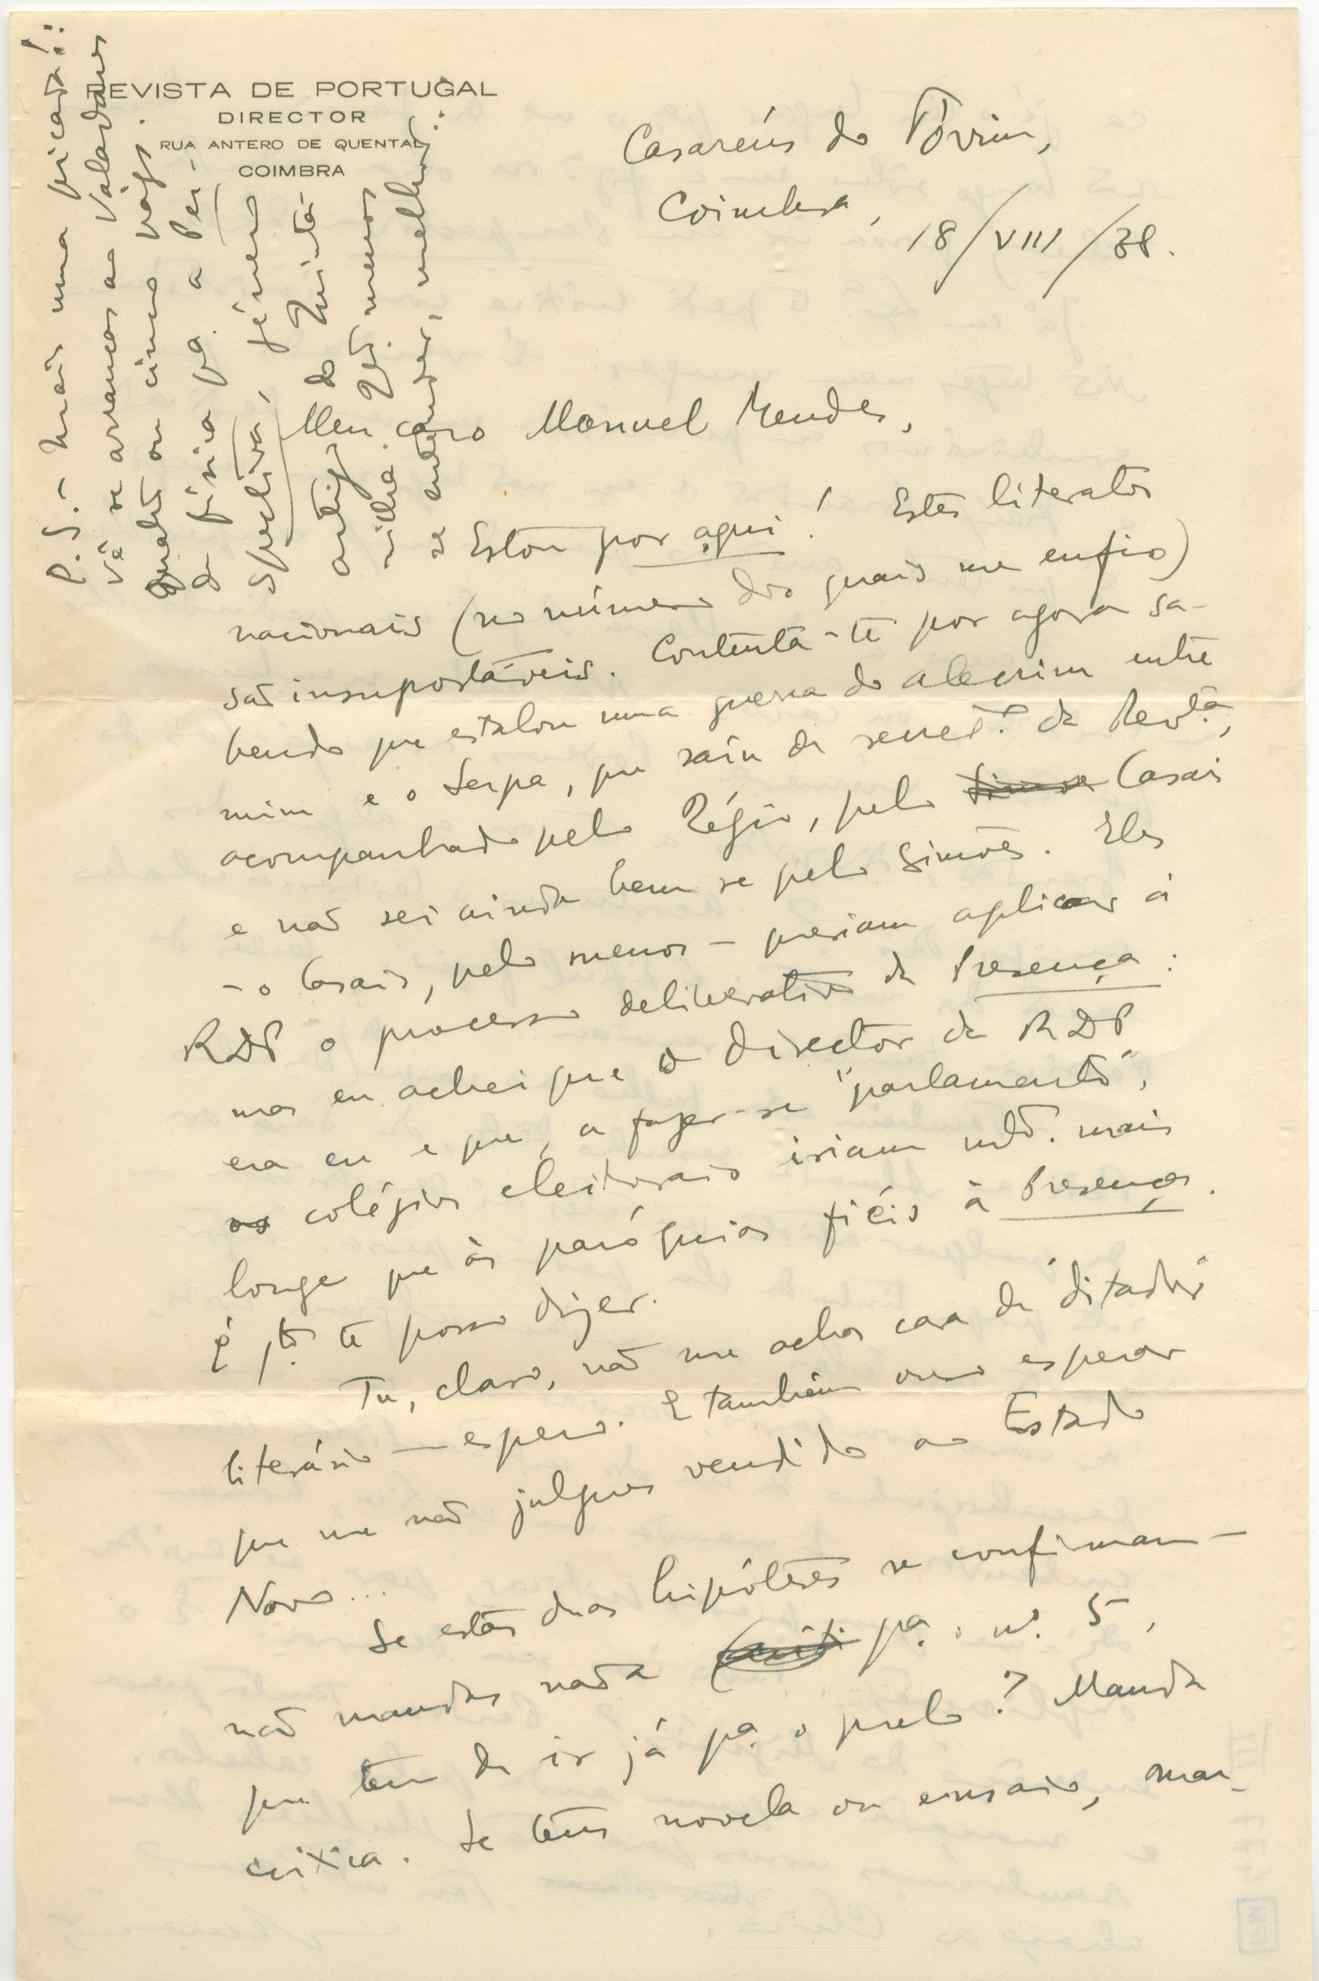 REVISTA DE PORTUGAL
DIRECTOR
RUA ANTERO DE QUENTAL
COIMBRA
Casaréus do
Coimbra, 18/VIII/38.
Meu caro Manuel Mendes,
Estou por aqui! Estes literatos
nacionais (no número dos quais me enfio)
são insuportáveis. Contenta-te por agora sa-
bendo que estalou uma guerra do alecrim entre
mim e o Serpa, que saíu de secret.º da Revta,
acompanhado pelo Régio, pelo Casais
e não sei ainda bem se pelo Simões. Eles
- o Casais, pelo menos - queriam aplicar à
RDP o processo deliberativo da Presença:
mas eu achei que o director da RDP
era eu e que, a fazer-se "parlamento",
os colégios eleitorais iriam mto. mais
longe que às paróquias fiéis à Presença.
É qto. te posso dizer.
Tu, claro, não me achas cara de "ditador"
literário — espero. E também ouso esperar
que me não julgues vendido ao Estado
Novo...
Se estas duas hipóteses se confirmam —
não mandas nada pa. o nº. 5,
que tem de ir já pa. o prelo? Manda
crítica. Se tens novela ou ensaio, man-
P.S. - Mais uma picada!:
vê se arrancas ao Valadares
quatro ou cinco págs.
de física pa. a Per-
spectiva, género
artigo do Quinta-
nilha. Qto. menos
se entender, melhor...